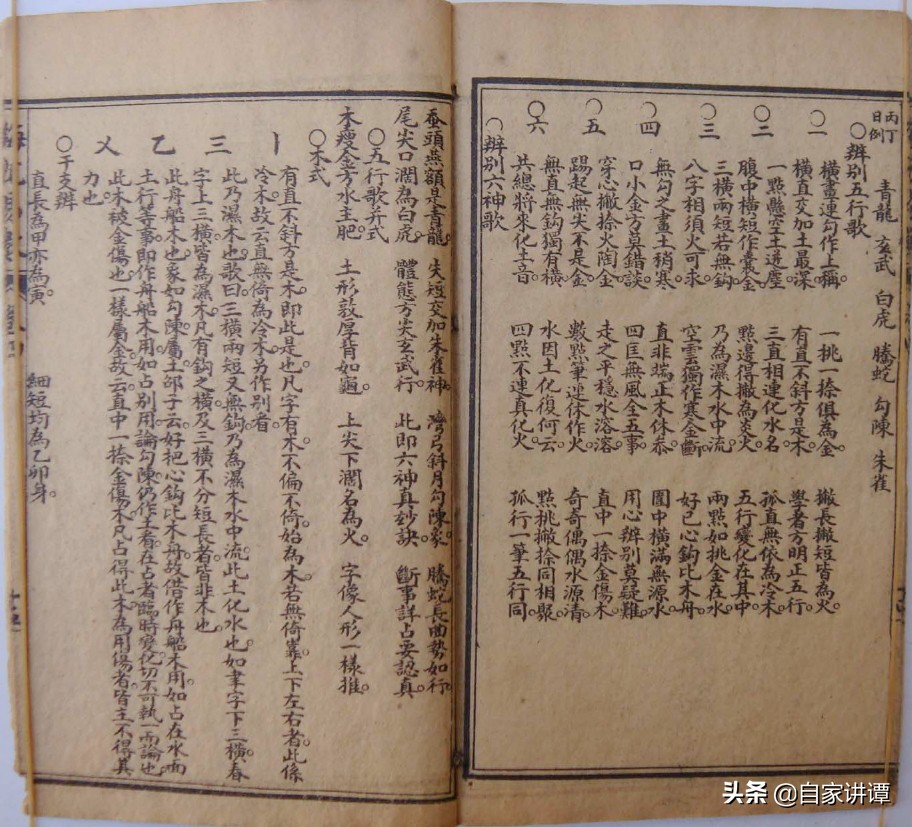 丙丁日例 青龍 玄武 白虎 騰蛇 勾陳 朱雀
〇辨別五行歌
〇一 橫畫連勾作土稱。 一挑一捺俱為金。 撇長撇短皆為火。
橫直交加土最深 有直不斜方是木 學者方明正五行。
〇二 一點懸空土迸塵 三直相連化水名 孤直無依為冷木。
腹中橫短作囊金 點邊得撇為炎火 五行變化在其中。
〇三 三橫兩短若無鈎。 乃為濕木水中流。 兩點如挑金在水
八字相須火可求 空雲獨作寒金斷 好已心鈎比木舟
〇四 無勾之畫土稍寒 直非端正木休參 圍中橫滿無源水
口小金方莫錯談。 四匡無風全五事 用心辨別莫疑難
〇五 穿心撇捺火陶金 走之平穩水溶溶 直中一捺金傷木
踢起無尖不是金 數點筆連休作火 奇奇偶偶水源清
〇六 無直無鈎獨有橫 水因土化復何云 點挑撇捺同相聚
共總將來化土音 四點不連真化火。 孤行一筆五行同
〇辨別六神歌
蚕頭燕額是青龍。 尖短交加朱雀神 灣弓斜月勾陳象。 騰蛇長曲勢如行
尾尖口濶為白虎。 體態方尖玄武行 此即六神真妙訣 斷事詳占要認真
〇五行歌并式
木瘦金方水主肥 土形敦厚背如龜 上尖下濶名為火。 字像人形一樣推
〇木式
丨 有直不斜方是木即此是也凡字有木不偏不倚始為木若無倚靠上下左右者此係
冷木故云直無倚為冷木另作別看
三 此乃濕木也歌曰三橫兩短又無鈎乃為濕木水中流此土化水也如聿字下三橫春
字上三橫皆為濕木凡有鈎之橫及三橫不分短長者皆非木也
乙 此舟船木也象如勾陳屬土邵子云好把心鈎比木舟故借作舟船木用如占在水面
土行等事即作舟船木用如占別用論勾陳仍作土看在占者臨時變化切不可執一而論也
乂 此木被金傷也一樣屬金故云直中一捺金傷木凡占得此木為用傷者皆主不得其
力也
〇干支辨
直長為甲亦為寅。 細短均為乙卯身。
头条 @自家讲谭